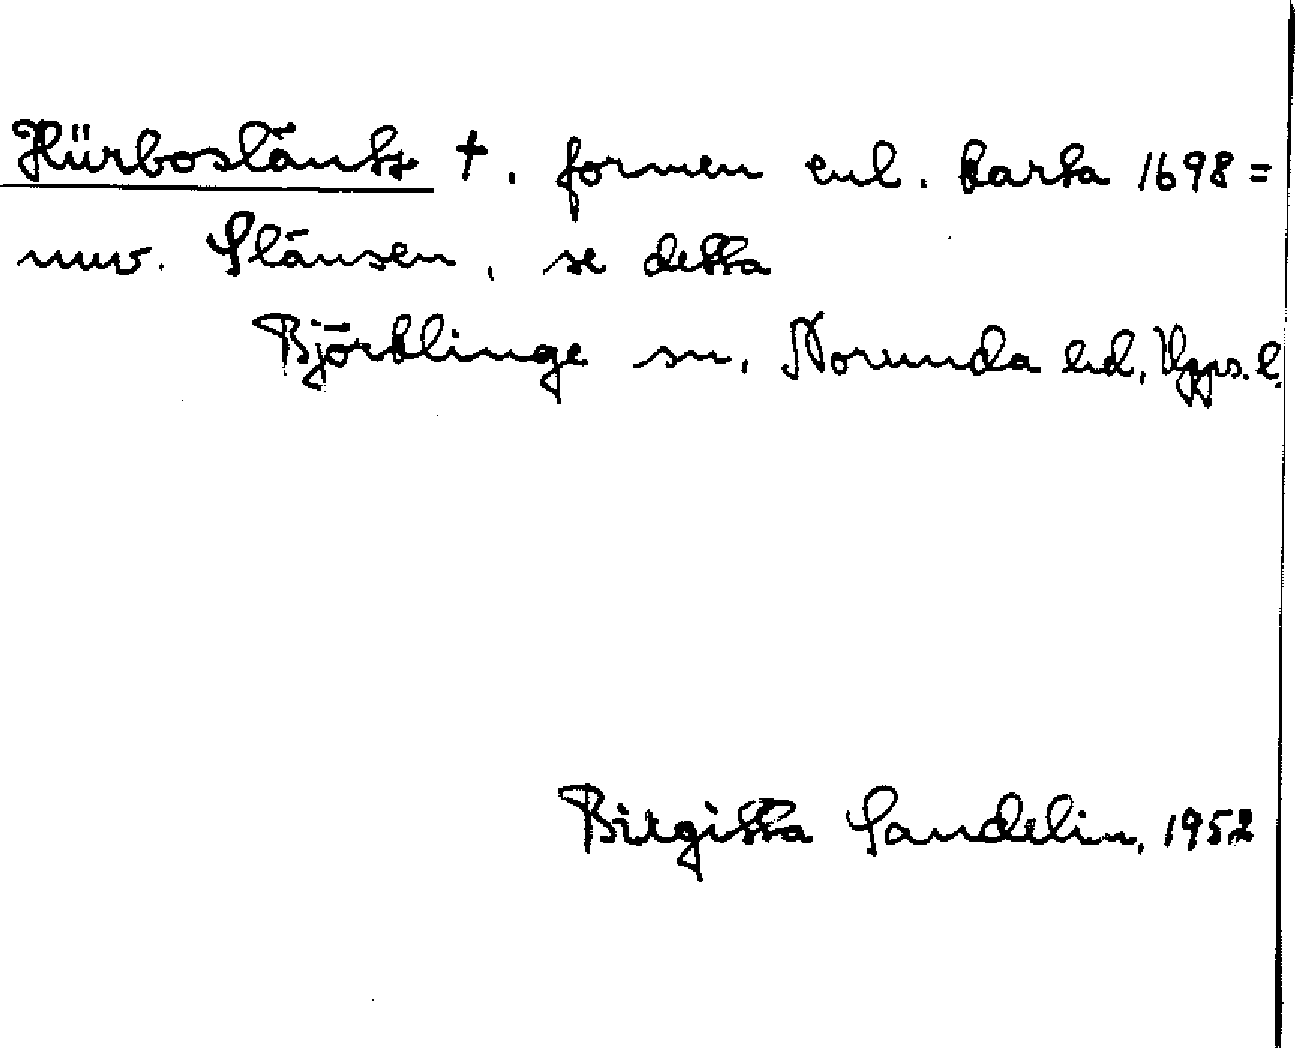 Hürboslänt †. formen enl. karta 1698 =
nuv. Slänsen, se detta
Björklinge sn. Norunda hd, Upps. l.
Birgitta Sandelin, 1952